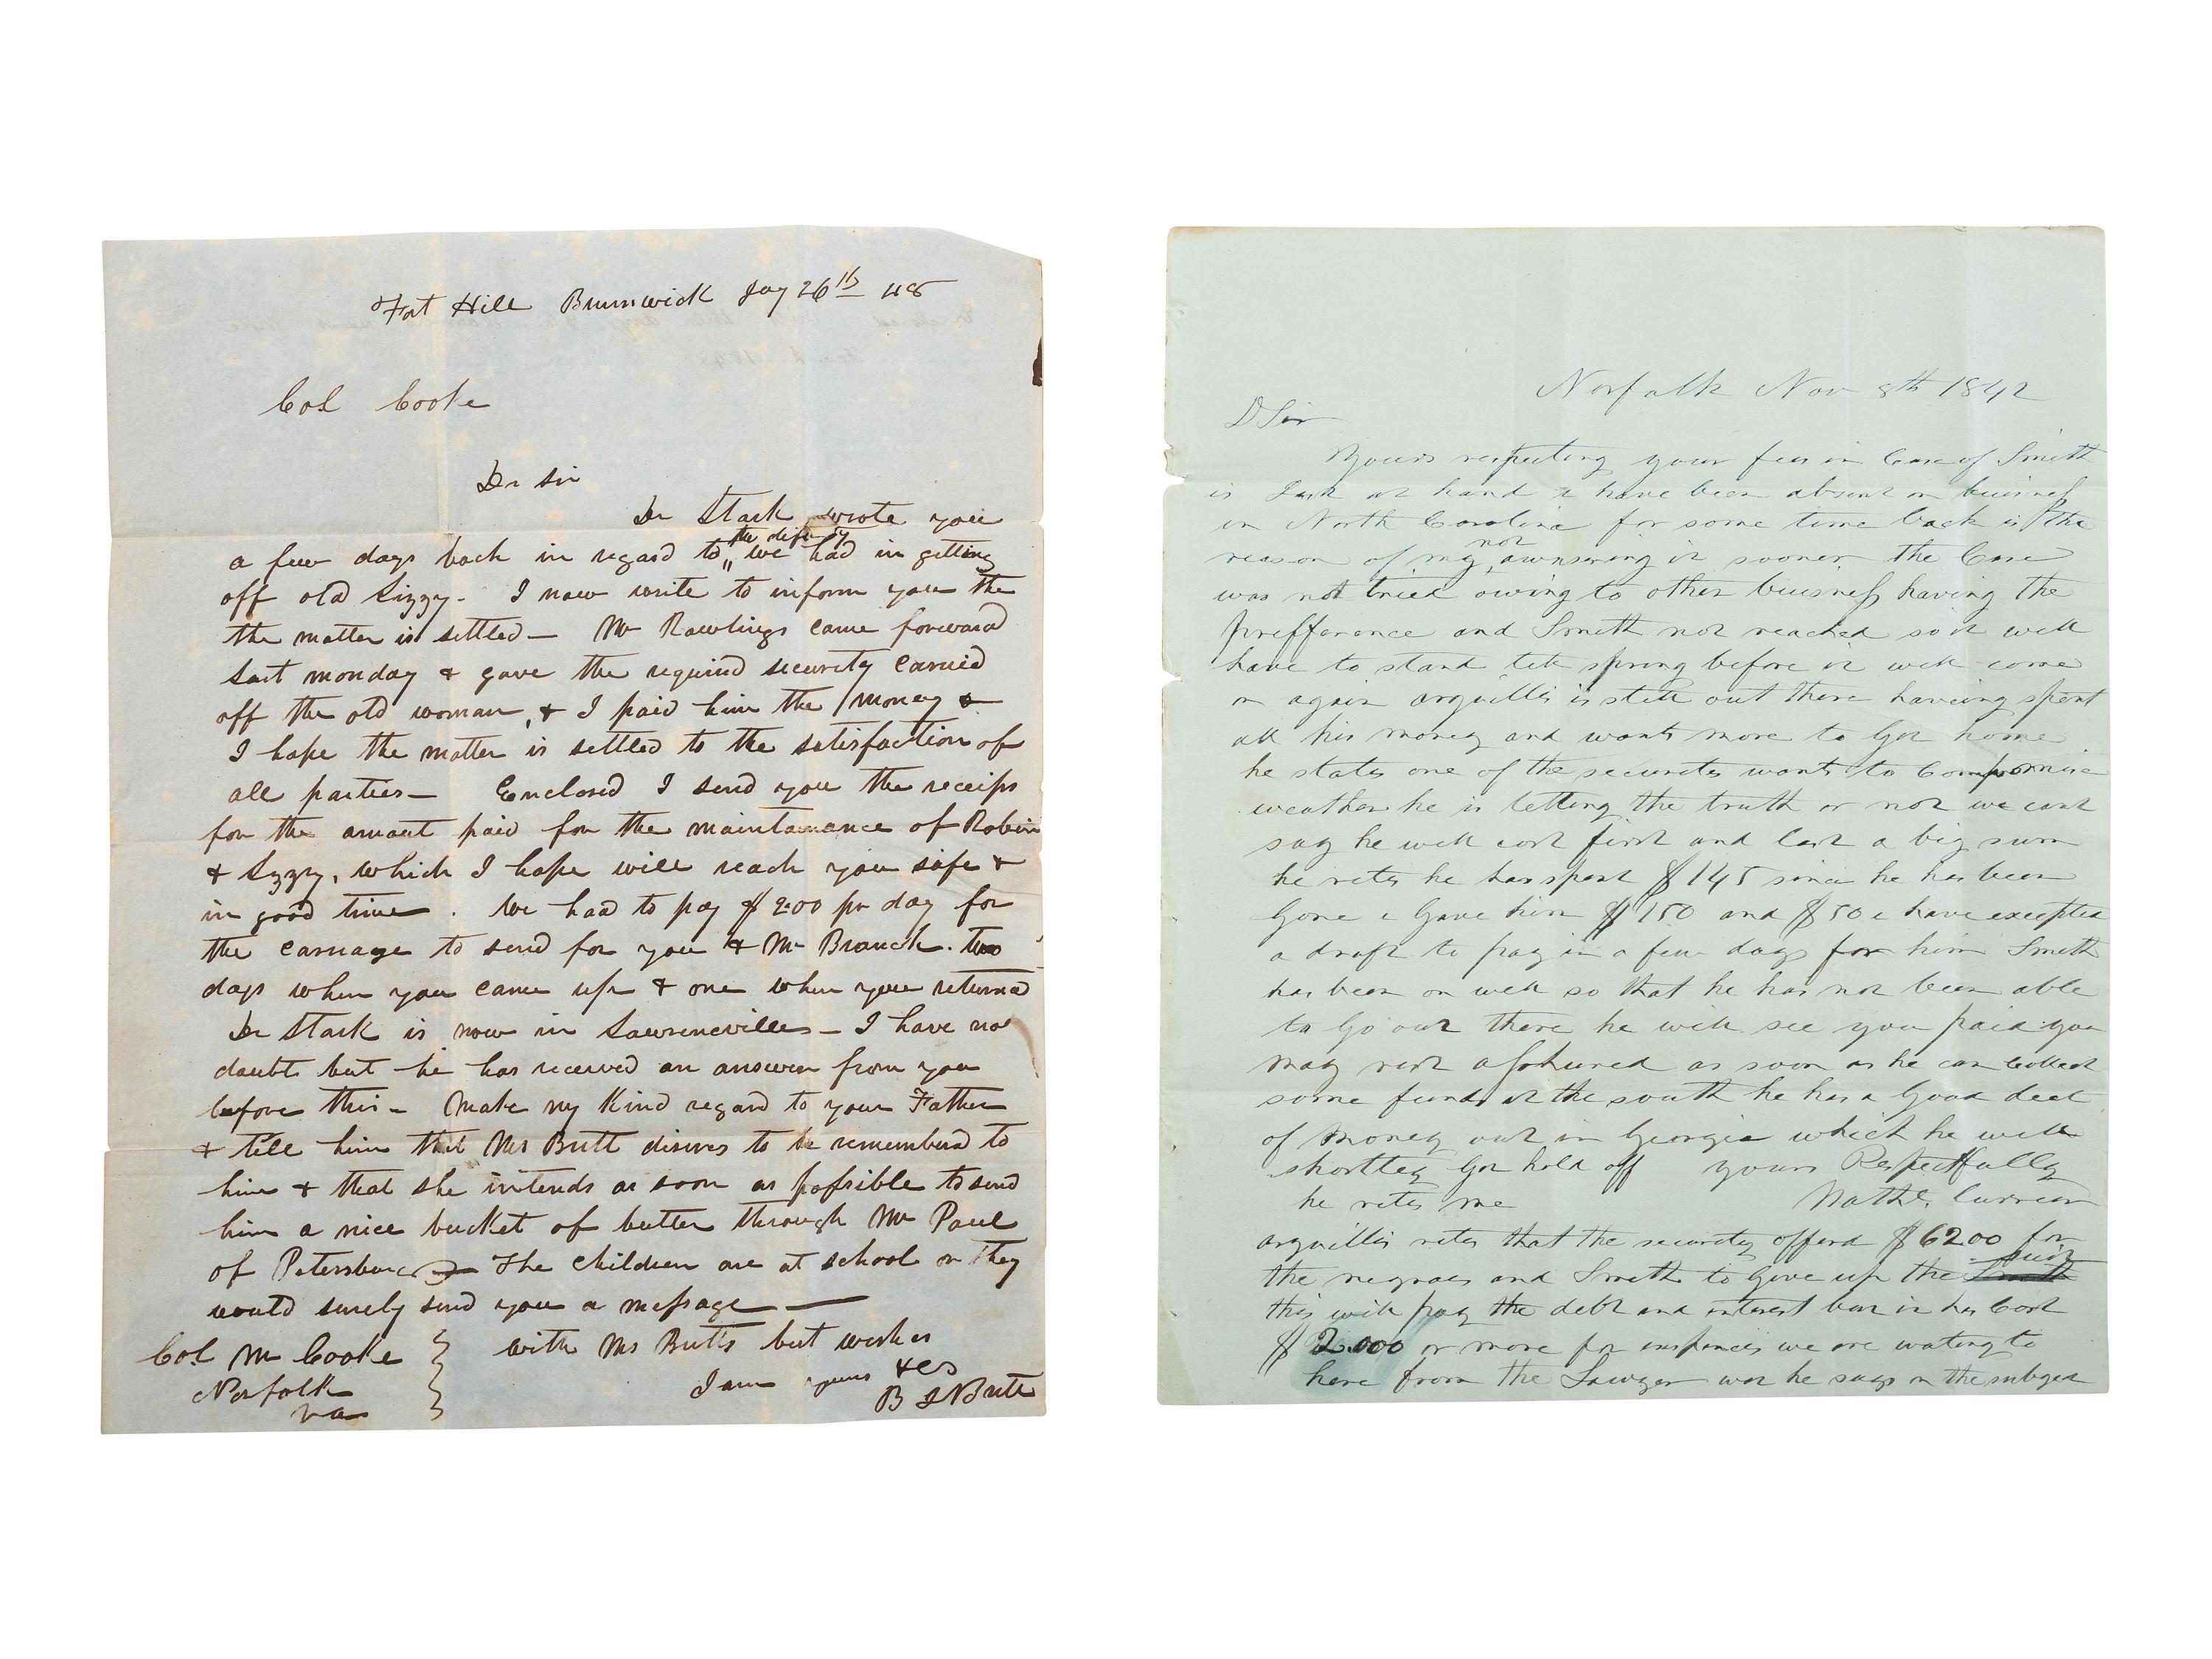 Fort Hill Brunswick Jay 26th 48
Col Cooke
Dr Sir
Dr Stark wrote you
a few days back in regard to the dificulty we had in getting
off old Lizzy - I now write to inform you the
the matter is settled - Mr Rawlings came forward
last monday & gave the required security carried
off the old woman, & I paid him the money &
I hope the matter is settled to the satisfaction of
all parties - Enclosed I send you the receips
for the amout paid for the maintanance of Robin
& Lizzy, which I hope will reach you safe &
in good time. We had to pay $2.00 pr day for
the carriage to send for you & Mr Branch. two
days when you came up & one when you returned
Dr Stark is now in Lawrenceville - I have no
doubt but he has received an answer from you
before this - Make my Kind regard to your Father
& tell him that Mrs Butt disires to be rememberd to
him & that she intends as soon as possible to send
him a nice bucket of butter through Mr Paul
of Petersburg The children are at school or they
would surely send you a message
Col M Cooke with Mrs Butts best wishes
Norfolk I am yours &c
Va B Butts
Norfolk Nov 8th 1842
D Sir
Yours respecting your fees in Case of Smith
is Just at hand i have been absent on buisness
in North Carolina for some time back is the
reason of my not awnsering it sooner the Case
was not tried owing to other buisness having the
prefferance and Smith not reached so it will
have to stand till spring before it will come
on again arguillis is still out there having spent
all his money and wants more to Get home
he states one of the securites wants to Compromise
weather he is telling the truth or not we cant
say he will cost first and last a big sum
he rites he has spent $145 since he has been
Gone i Gave him $150 and $50 i have excepted
a draft to pay in a few days for him Smith
has been on well so that he has not been able
to Go out there he will see you paid you
may rest asshured as soon as he can Collect
some funds at the south he has a Good deel
of Money out in Georgia which he will
shortley Get hold off yours Respectfully
he rites me Nathl. Currier
arguillis rites that the security offerd $6200 for
the negroes and Smith to Give up the suit
this will pay the debt and interest but it has Cost
$2.000 or more for we are wating to
here from the Lawyer wat he says on the subject